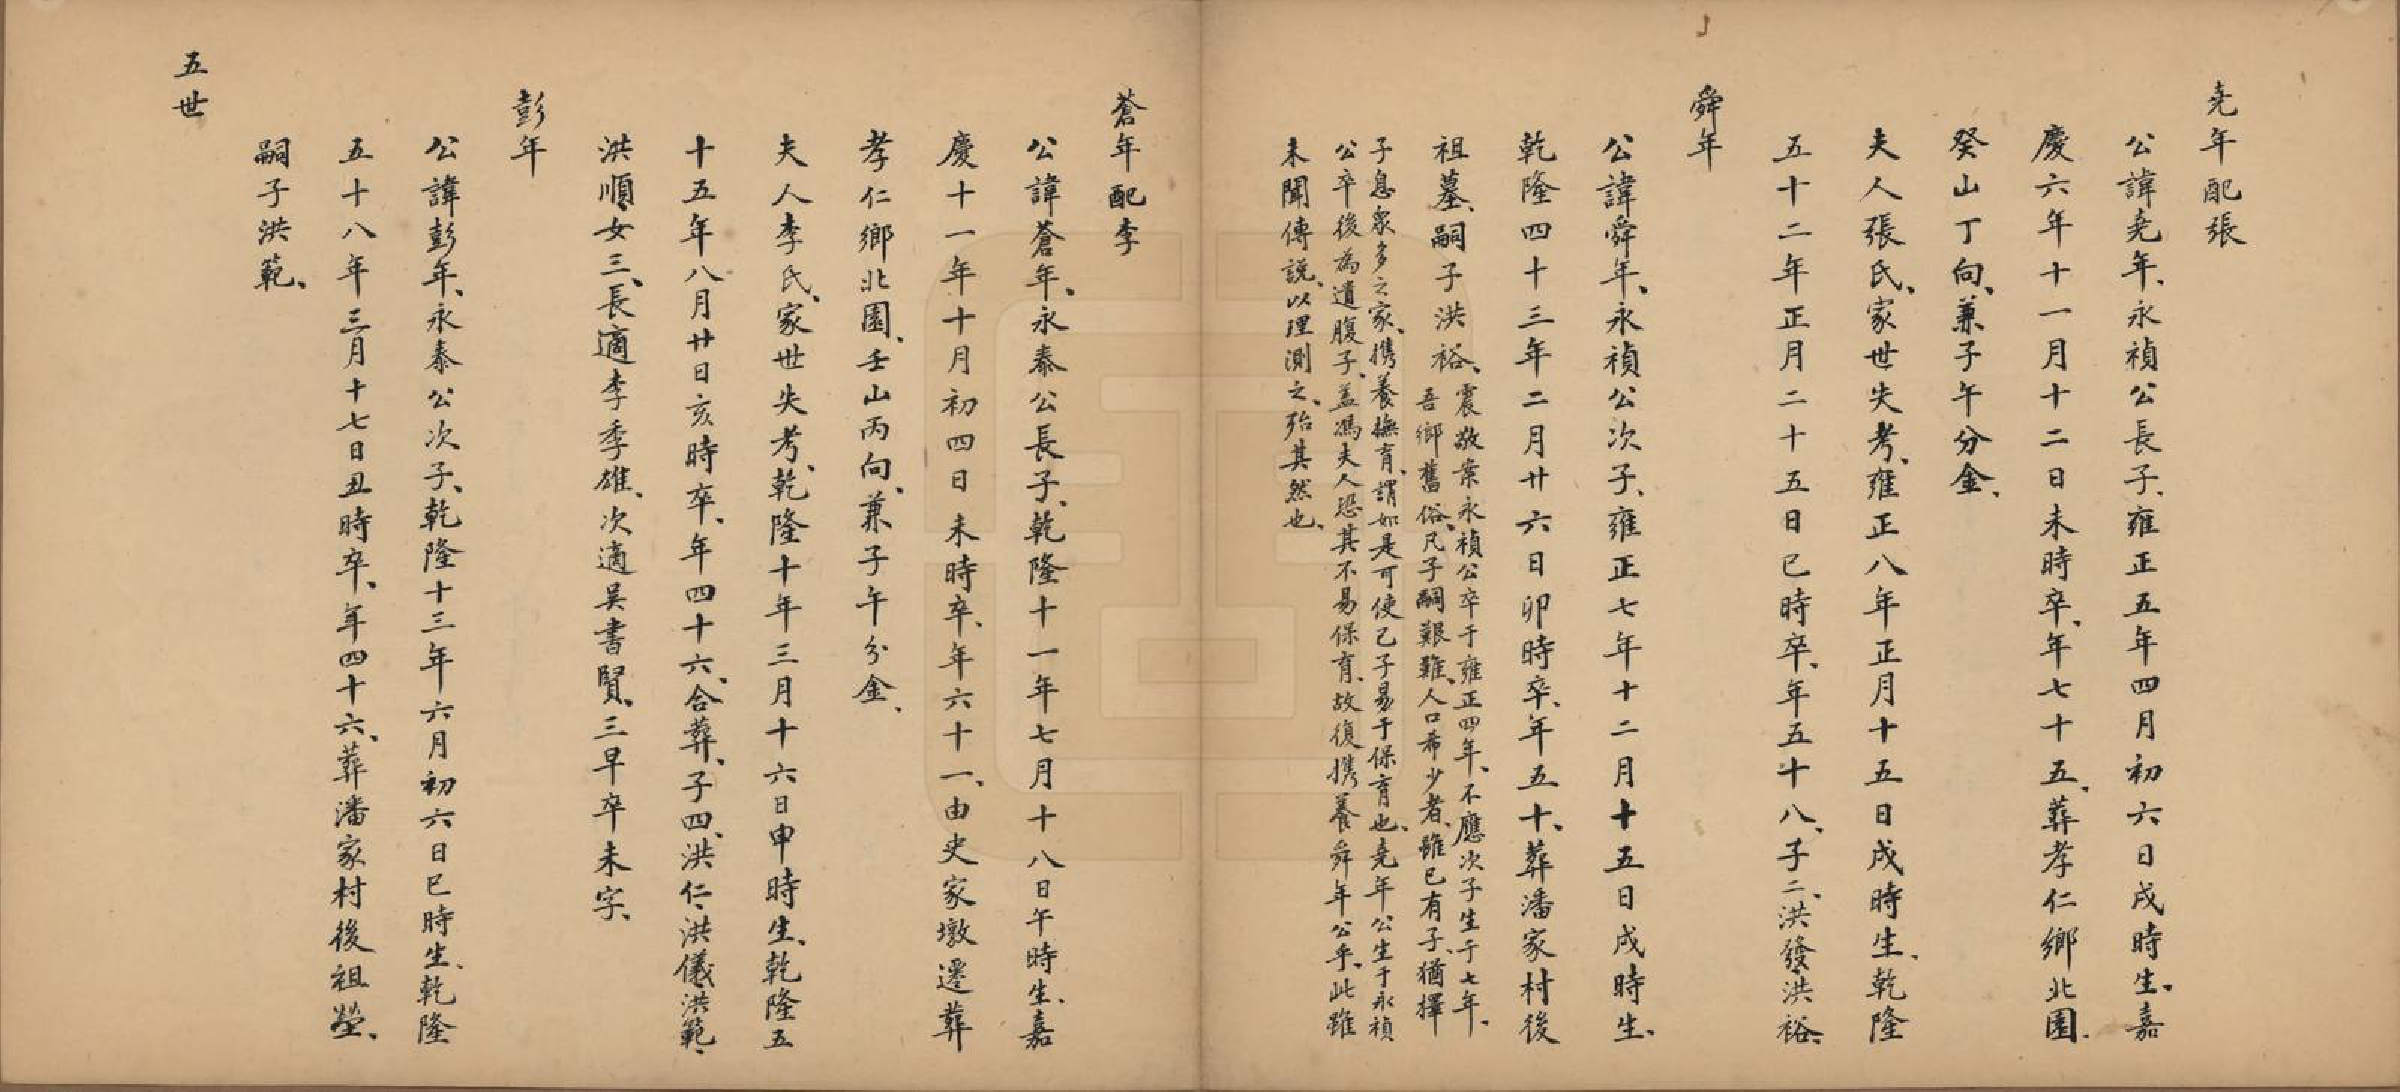 尭年配張
公諱尭年、永禎公長子、雍正五年四月初六日戌時生、嘉
慶六年十一月十二日未時卒、年七十五、葬孝仁鄉北園、
癸山丁向、兼子午分金、
夫人張氏、家世失考、雍正八年正月十五日戌時生、乾隆
五十二年正月二十五日巳時卒、年五十八、子二、洪發、洪裕、
舜年
公諱舜年、永禎公次子、雍正七年十二月十五日戌時生、
乾隆四十三年二月廿六日卯時卒、年五十、葬潘家村後
祖墓、嗣子洪裕、
震敬案永禎公卒于雍正四年、不應次子生于七年、
吾鄉舊俗、凡子嗣艱難、人口希少者、雖已有子、猶擇
子息衆多之家、携養撫育、謂如是可使己子易于保育也、尭年公生于永禎
公卒後、為遺腹子、蓋馮夫人恐其不易保育、故復携養舜年公乎、此雖
未聞傳說、以理測之、殆其然也、
蒼年配李
公諱蒼年、永泰公長子、乾隆十一年七月十八日午時生、嘉
慶十一年十月初四日未時卒、年六十一、由史家墩遷葬
孝仁鄉北園、壬山丙向、兼子午分金、
夫人李氏、家世失考、乾隆十年三月十六日申時生、乾隆五
十五年八月廿日亥時卒、年四十六、合葬、子四、洪仁、洪儀、洪範、
洪順、女三、長適李季雄、次適吴書賢、三早卒未字、
彭年
公諱彭年、永泰公次子、乾隆十三年六月初六日巳時生、乾隆
五十八年三月十七日丑時卒、年四十六、葬潘家村後祖塋、
嗣子洪範、
五世